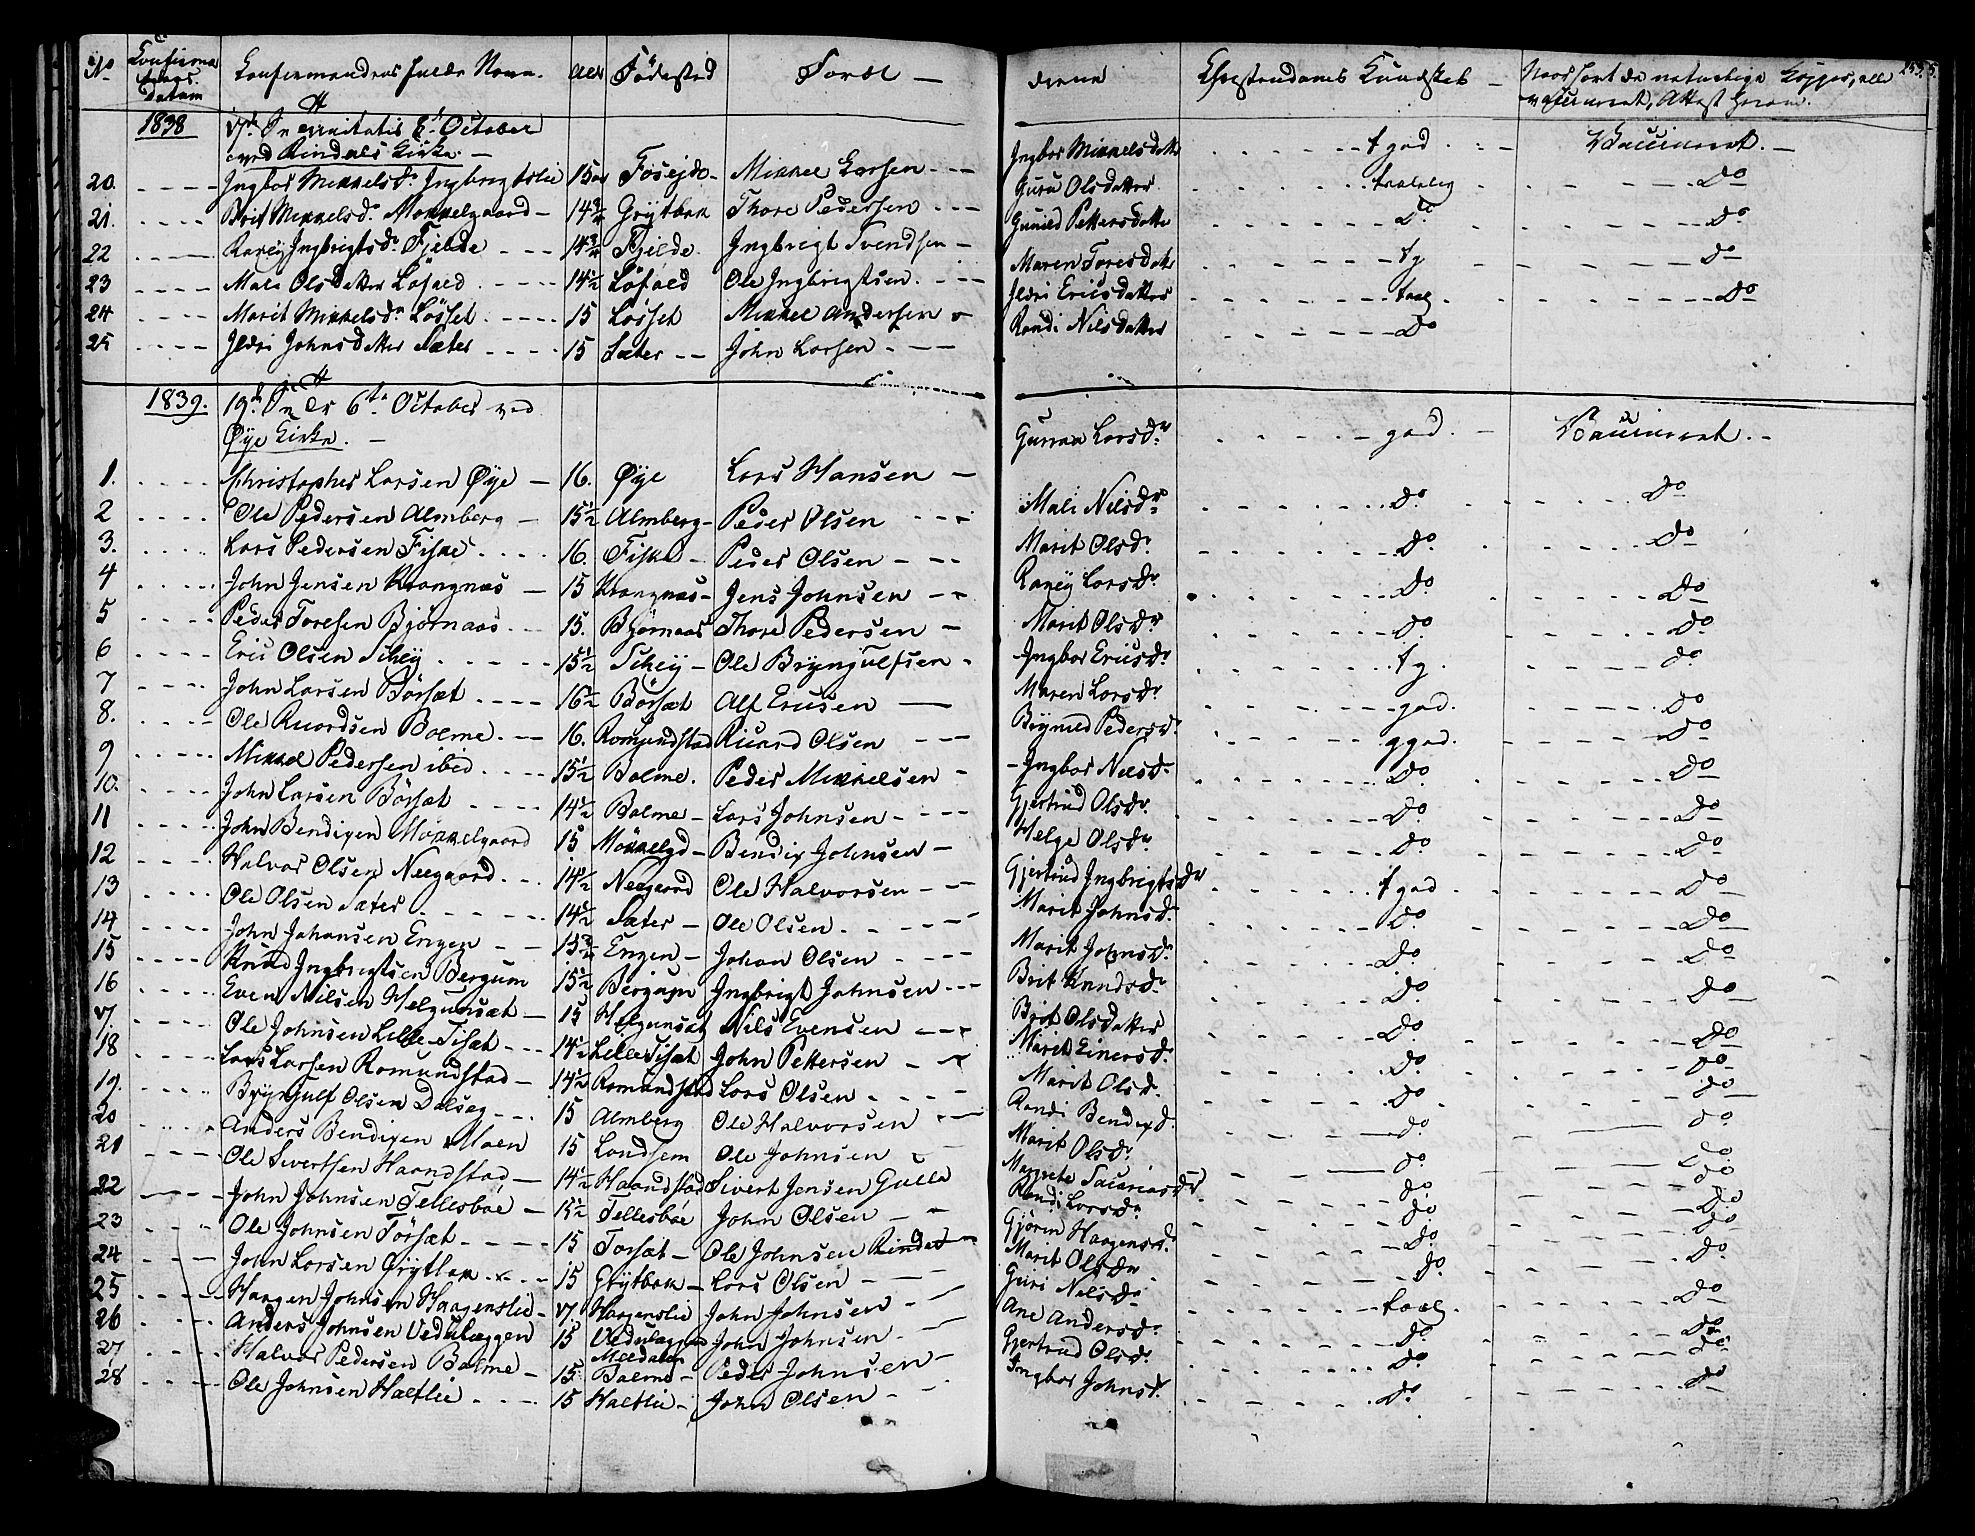 No Confirmations Datum Confirmandens fulde Navn. Alder Fødested Forældrene Christendoms Kundskab Naar havt de naturlige Kopper, eller vaccineret, Attest herom. 253.
1838 Trinitatis October
ved Rindals Kirke.
20. Ingbor Mikkelsdr Ingbrigtslie 15 Mikkel Larsen Ingbor Mikkelsdatter t god Vaccineret.
21. Brit Mikkelsdr Mokkelgaard 14¾ Grytbak Thore Pedersen Guru Olsdatter taalelig Do
22 Raney Ingbrigtsdr Fjelde 14¾ Fjelde Ingbrigt Svendsen Gunild Pettersdatter Do Do
23 Mali Olsdatter Løfald 14½ Løfald Ole Ingbrigtsen Maren Toresdatter tg Do
24 Marit Mikkelsdr Løsset 15 Løsset Mikkel Andersen Ildri Ericsdatter taal Do
25 Ildri Johnsdatter Sæter 15 Sæter John Larsen Randi Nilsdatter Do
1839. 19d Sn 6te October ved
Øye Kirke.
1. Christopher Larsen Øye 16. Øye Lars Hansen Gunna Larsdr god Vaccineret
2 Ole Pedersen Almberg 15½ Almberg Peder Olsen Mali Nilsdr Do Do
3. Lars Pedersen Fiske 16. Fiske Peder Olsen Marit Olsdr Do Do
4 John Jensen Krangnæs 15 Krangnæs Jens Johnsen Raney Larsdr Do Do
5 Peder Toresen Bjørnaas 15. Bjørnaas Thore Pedersen Marit Olsdr Do Do
6 Eric Olsen Schey 15½ Schey Ole Bryngulfsen Ingbor Ericsdr tg Do
7 John Larsen Børsæt 16½ Børsæt Alf Ericsen Maren Larsdr god Do
8. Ole Ricardsen Bolme 16. Romundstad Ricard Olsen Brynild Pedersdr ggod Do
9 Mikkel Pedersen ibid 15½ Bolme. Peder Mikkelsen Ingbor Nilsdr Do Do
10. John Larsen Børsæt 14½ Bolme Lars Johnsen Gjertrud Olsdr Do Do
11 John Bendixen Mökkelgaard 15 Mökkelgd Bendix Johnsen Helge Olsdr Do Do
12 Halvor Olsen Neegaard 14½ Neegaard Ole Halvorsen Gjertrud Ingbrigtsdr t god Do
13 Ole Olsen Sæter 14½ Sæter Ole Olsen Marit Johnsdr Do Do
14 John Johansen Engen 15¾ Engen Johan Olsen Marit Johnsdr Do Do
15 Knud Ingbrigtsen Bergum 15½ Bergum Ingbrigt Johnsen Brit Knudsdr Do Do
16 Even Nilsen Helgunsæt 15 Helgunsæt Nils Evensen Brit Olsdatter Do Do
17. Ole Johnsen Lille-Tisæt 14½ Lille Tisæt John Pettersen Marit Einersdr Do Do
18 Lars Larsen Romundstad 14½ Romundstad Lars Olsen Marit Olsdr Do Do
19. Bryngulf Olsen Dalseg 15 Almberg Ole Halvorsen Randi Bendixd. Do Do
20 Anders Bendixen Moen 15 Landsem Ole Johnsen Marit Olsdr Do Do
21 Ole Sivertsen Haandstad 14½ Haandstad Sivert Jensen Gulla Margrete Do Do
22 John Johnsen Tellesbøe 15½ Tellesbøe John Olsen Randi Larsdr Do Do
23 Ole Johnsen Törsæt 15 Torsæt Ole Johnsen Rindal Gjøren Haagensd. Do Do
24 John Larsen Grytbak 15 Grytbak Lars Olsen Marit Olsdr Do Do
25 Haagen Johnsen Haagenslie 17. Haagenslie John Johnsen Guri Nilsdr taal Do
26 Anders Johnsen Uedulæggen 15 Uedulæggen Meldalen John Johnsen Ane Andersdr Do Do
27 Halvor Pedersen Bolme 15 Bolme Peder Johnsen Gjertrud Olsdr Do Do
28 Ole Johnsen Haltlie 15 Haltlie John Olsen Ingbor Johnsdr Do Do